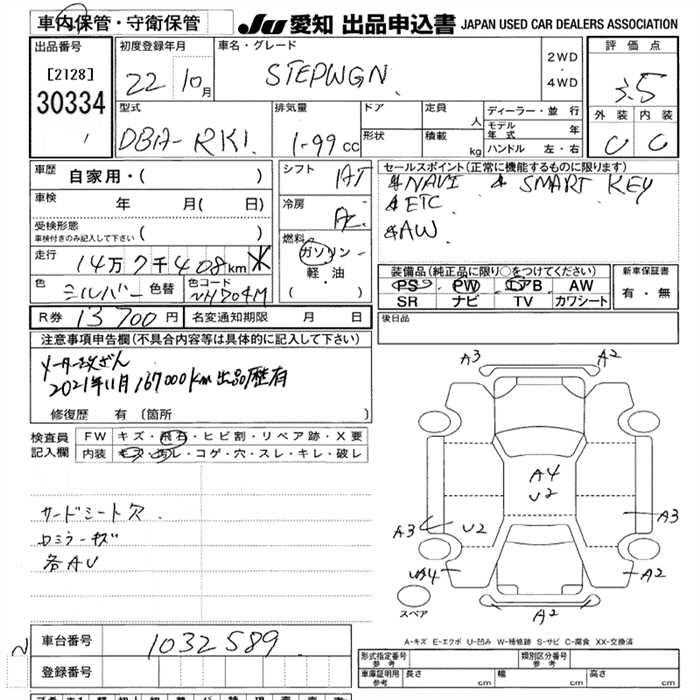 車内保管・守衛保管 JU 愛知 出品申込書 JAPAN USED CAR DEALERS ASSOCIATION
出品番号 初度登録年月 車名・グレード 評価点
[2128] 22 10月 STEPWGN 2WD・4WD 3.5
30334 型式 排気量 ドア 定員 人 ディーラー・並行 外装 内装
DBA-RK1 1-99cc 形状 積載 kg モデル年式 年 C C
ハンドル 左・右
車歴 自家用・( ) シフト AT セールスポイント(正常に機能するものに限ります)
車検 年 月( 日) 冷房 AC NAVI SMART KEY
受検形態 ( ) ETC
車検付きのみ記入して下さい 燃料 AW
走行 14万7千408km ガソリン・軽・油 ( ) 装備品(純正品に限り○をつけてください) 新車保証書
色 シルバー 色替 色コード NH704M PS PW エアB AW 有・無
SR ナビ TV カワシート
R券 13700円 名変通知期限 月 日 後日品
注意事項申告欄(不具合内容等は具体的に記入して下さい)
メーター改ざん
2021年11月 167000km 出品歴有
修復歴 有 (箇所 )
検査員記入欄 FW キズ・飛石・ヒビ割・リペア跡・X要
内装 キズ・汚レ・コゲ・穴・スレ・キレ・破レ
サードシート穴
ロミラーキズ
各AU
A3 A2
A4
U2
A3 U2 A3
U4 A2
スペア A2
A-キズ E-エクボ U-凹み W-補修跡 S-サビ C-腐食 XX-交換済
車台番号 1032589
登録番号
形式指定番号 参考 類別区分番号 参考
車庫証明用 参考 長さ cm 幅 cm 高さ cm